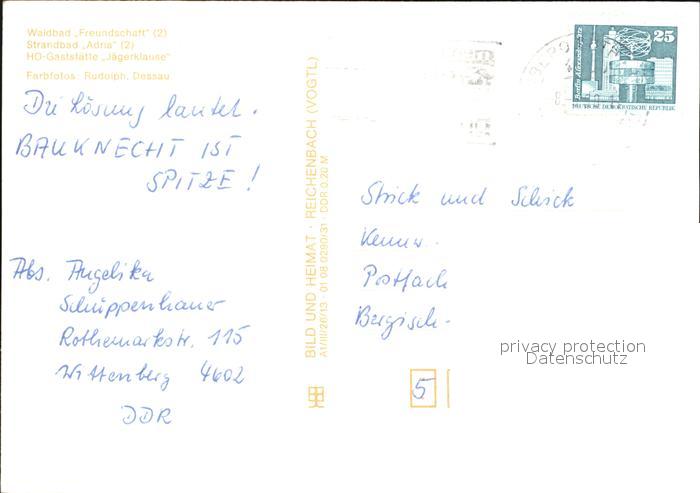 Waldbad „Freundschaft" (2)
Strandbad „Adria" (2)
HO-Gaststätte „Jägerklause"
Farbfotos: Rudolph, Dessau
Die Lösung lautet.
BAUKNECHT IST
SPITZE!
Abs. Angelika
Schüppenhauer
Rothemarkstr. 115
Wittenberg 4602
DDR
BILD UND HEIMAT · REICHENBACH (VOGTL)
A1/III/26/13 · 01 08 0290/31 · DDR 0,20 M
25
Berlin, Alexanderplatz
DEUTSCHE DEMOKRATISCHE REPUBLIK
Strick und Schick
Kennw.
Postfach
Bergisch-
5
privacy protection
Datenschutz